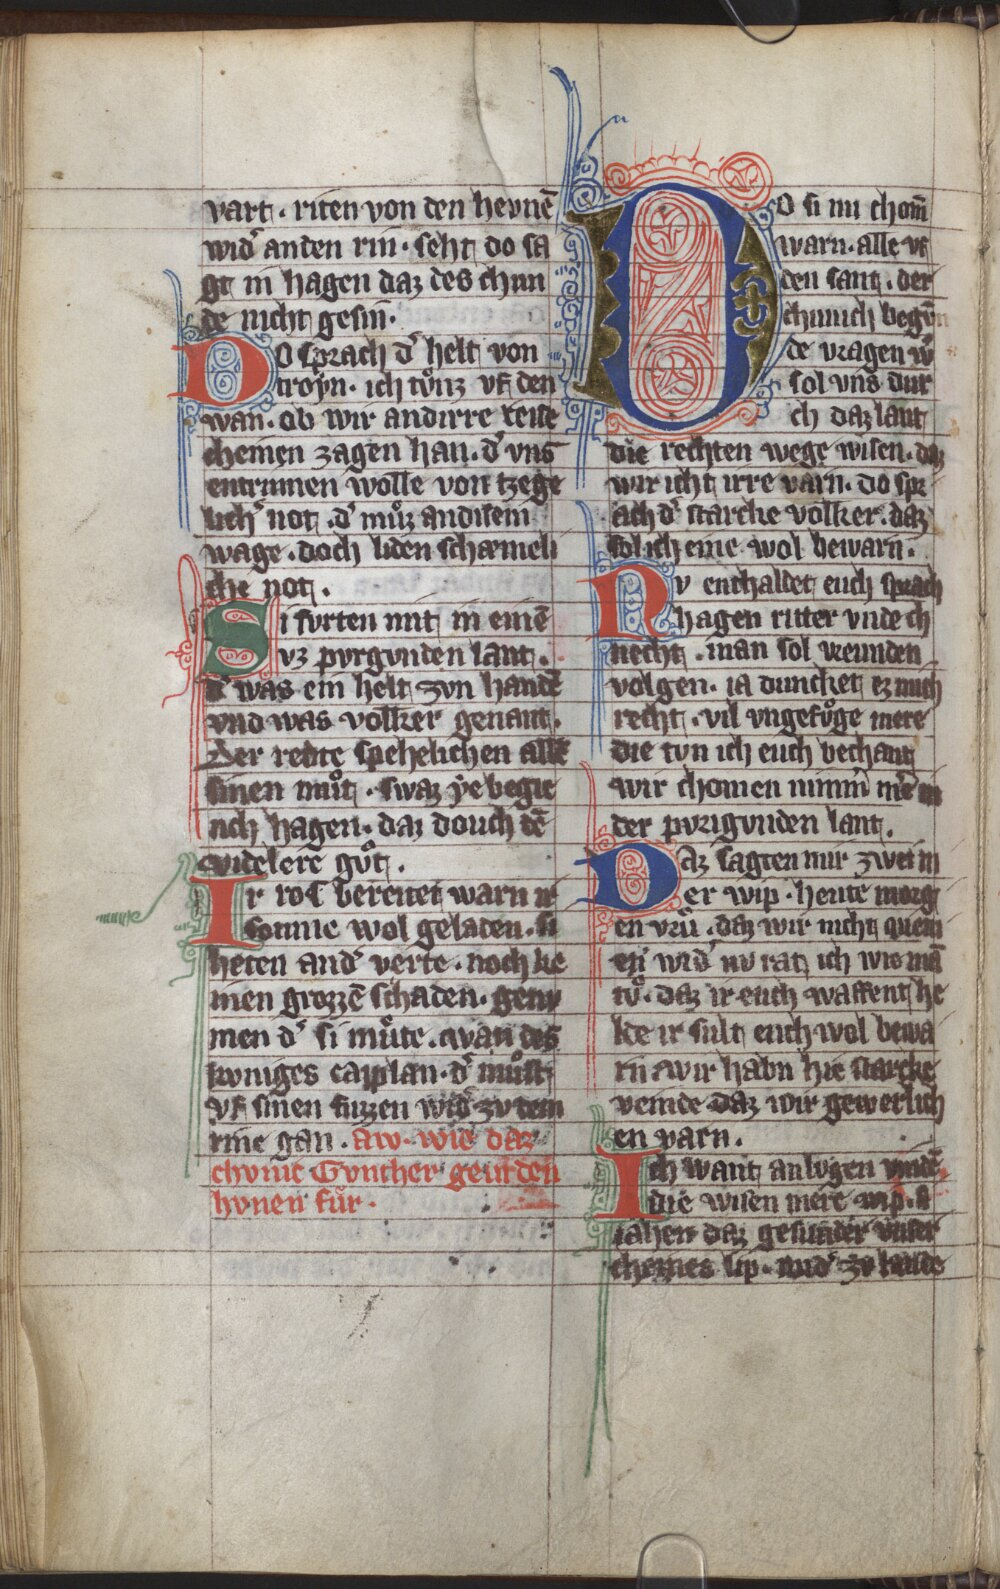 vart · riten von den hevnē
wid᾽ anden rin · seht do sa
gt in hagen daz des chun
de nicht gesin ·
Do sprach d᾽ helt von
troyn · ich tůnz vf den
wan · ob wir andirre reite
cheinen zagen han · d᾽ vns
entrinnen wolle von tzege
lich᾽ not · d᾽ můz andisem
wage · doch liden schæmeli
che not ·
Si fvrten mit in einē
vz pvrgvnden lant ·
d᾽ was ein helt zvn handē
vnd was volker genant ·
Der redte spehelichen alle
sinen můt · swaz ye begie
nch hagen · daz douch dē
videlere gůt ·
Ir ros bereitet warn ir
sovme wol geladen · si
heten and᾽ verte · noch ke
inen grozzē schaden · genv
men d᾽ si můte · wan des
kvniges caplan · d᾽ můst
vf sinen fuzzen wid᾽ zv dem
rine gan · aw · wie daz
chvnic Gvnther zeu den
hvnen fůr ·
Do si nu chom̄
warn · alle vf
den sant · der
chunich begvn
de vragen w᾽
sol vns dur
ch daz lant
die rechten wege wisen · daz
wir icht irre varn · do spr
ach d᾽ starcke volker · daz
sol ich eine wol bewarn ·
Nv enthaldet euch sprach
hagen ritter vnde ch
necht · man sol vreunden
volgen · ia duncket ez mich
recht · vil vngefůge mere
die tvn ich euch bechant
wir chomen nimm᾽ mēr in
der pvrigvnden lant ·
Daz sagten mir zwei m
er wip · heute morg
en vrů · daz wir nicht quem
en wid᾽ nv rat ich wie mā
tů · daz ir euch waffent he
lde ir sult euch wol bewa
rn wir habn hie starcke
veinde daz wir gewerlich
en varn ·
Ich want an lvgen vinde
die wisen mere wip · si
iahen daz gesunder vnser
cheines lip · wid᾽ zv lande